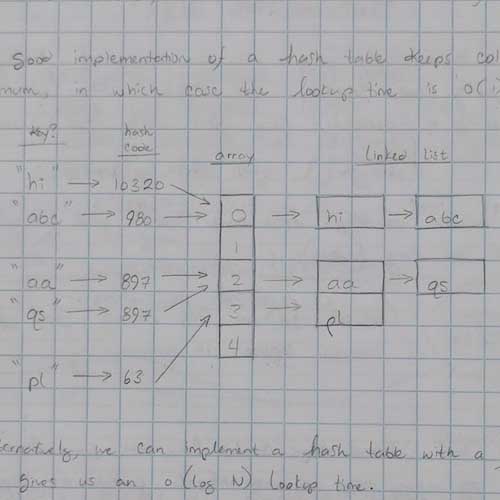 Good implementation of a hash table keeps col
mum, in which case the lookup time is O(1
key? hash code array linked list
"hi" → 10320
"abc" → 980 → 0 → hi → abc
1
"aa" → 897 → 2 → aa → qs
"qs" → 897 3 → pl
4
"pl" → 63
ternatively, we can implement a hash table with a
gives us an O(log N) lookup time.